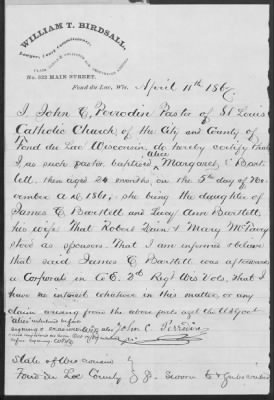 WILLIAM T. BIRDSALL,
Lawyer, Court Commissioner,
No. 523 MAIN STREET.
Fond du Lac, Wis. April 11th 186
I John C. Perrodin Pastor of St Louis
Catholic Church of the City and County of
Fond du Lac Wisconsin, do hereby certify that
Alice
I, as such pastor, baptised Margaret, E Bart
lett. then aged 24 months, on the 5th day of No
vember A.D. 1861, she being the daughter of
James E Bartlett and Lucy Ann Bartlett,
his wife That Robert & Mary
stood as sponsors. That I am informed & believe
that said James E Bartlett was afterwards
a Corporal in Co E. 2d Regt Wis Vols, That I
have no interest whatever in this matter, or any
claim arising from the above parties agt the US Govt
"Alice" interlined before
signing John C Perrodin
before signing
State of Wisconsin
Fond du Lac County } Sworn to & Subscribed